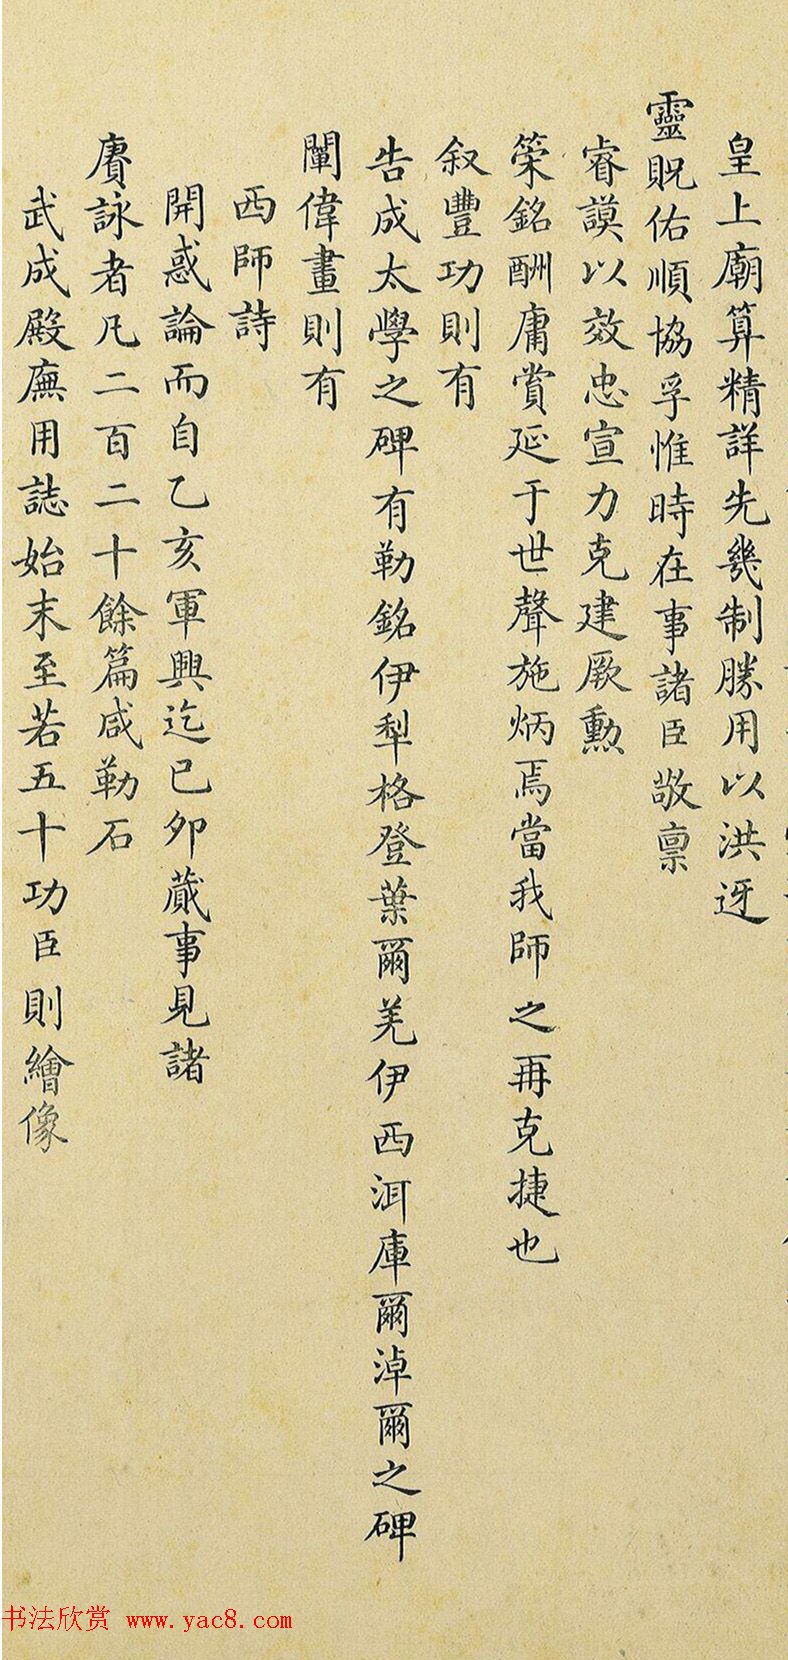 皇上廟算精詳先幾制勝用以洪迓
靈貺佑順協孚惟時在事諸臣敬禀
睿謨以效忠宣力克建厥勲
榮銘酬庸賞延于世聲施炳焉當我師之再克捷也
叙豐功則有
告成太學之碑有勒銘伊犁格登葉爾羌伊西洱庫爾淖爾之碑
闡偉畫則有
西師詩
開惑論而自乙亥軍興迄己卯蕆事見諸
賡詠者凡二百二十餘篇咸勒石
武成殿廡用誌始末至若五十功臣則繪像
书法欣赏 www.yac8.com